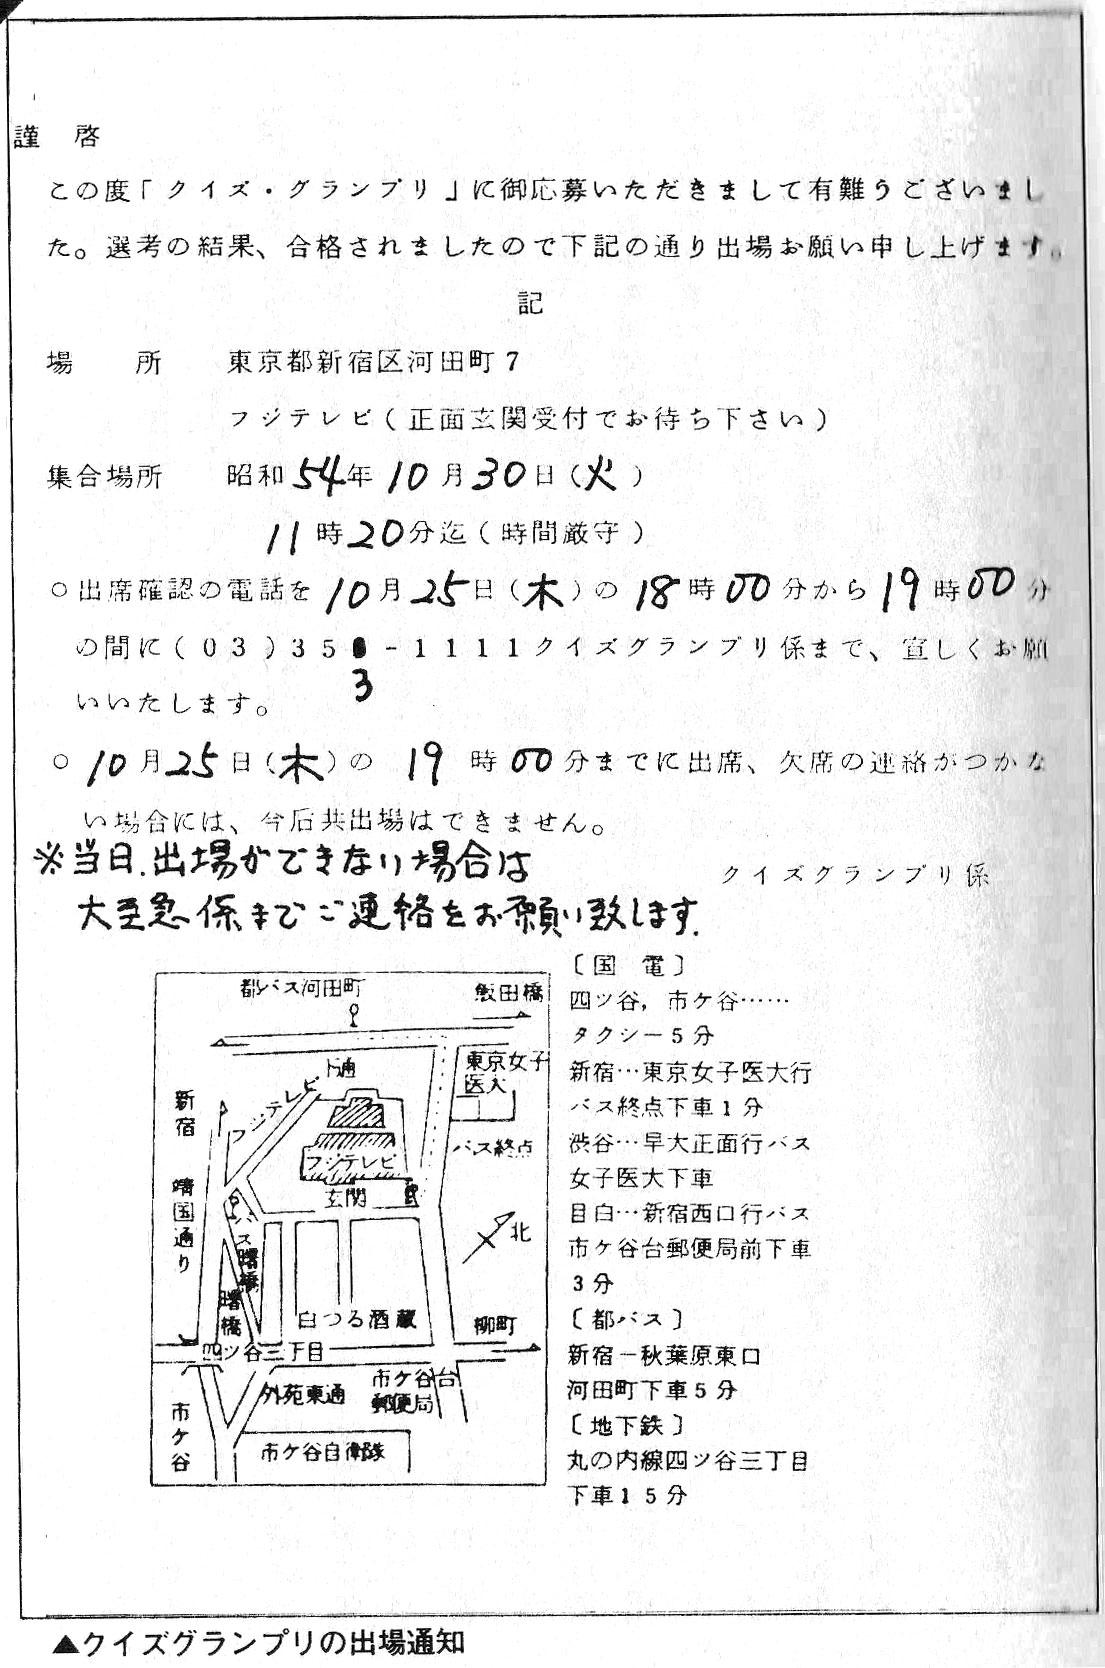 謹 啓
この度「クイズ・グランプリ」に御応募いただきまして有難うございまし
た。選考の結果、合格されましたので下記の通り出場お願い申し上げます。
記
場 所 東京都新宿区河田町7
フジテレビ(正面玄関受付でお待ち下さい)
集合場所 昭和54年10月30日(火)
11時20分迄(時間厳守)
○出席確認の電話を10月25日(木)の18時00分から19時00分
の間に(03)35 -1111クイズグランプリ係まで、宜しくお願
3
いいたします。
○10月25日(木)の19時00分までに出席、欠席の連絡がつかな
い場合には、今后共出場はできません。
※当日.出場ができない場合は
クイズグランプリ係
大至急係までご連絡をお願い致します.
都バス河田町
飯田橋
東京女子
医大
フジテレビ下通
新宿
バス終点
フジテレビ
玄関
靖国通り
バス
北
曙橋
曙橋
白つる酒蔵
柳町
四ツ谷三丁目
外苑東通
市ケ谷台
郵便局
市ケ谷
市ケ谷自衛隊
〔国 電〕
四ツ谷，市ケ谷……
タクシー5分
新宿…東京女子医大行
バス終点下車1分
渋谷…早大正面行バス
女子医大下車
目白…新宿西口行バス
市ケ谷台郵便局前下車
3分
〔都バス〕
新宿－秋葉原東口
河田町下車5分
〔地下鉄〕
丸の内線四ツ谷三丁目
下車15分
▲クイズグランプリの出場通知